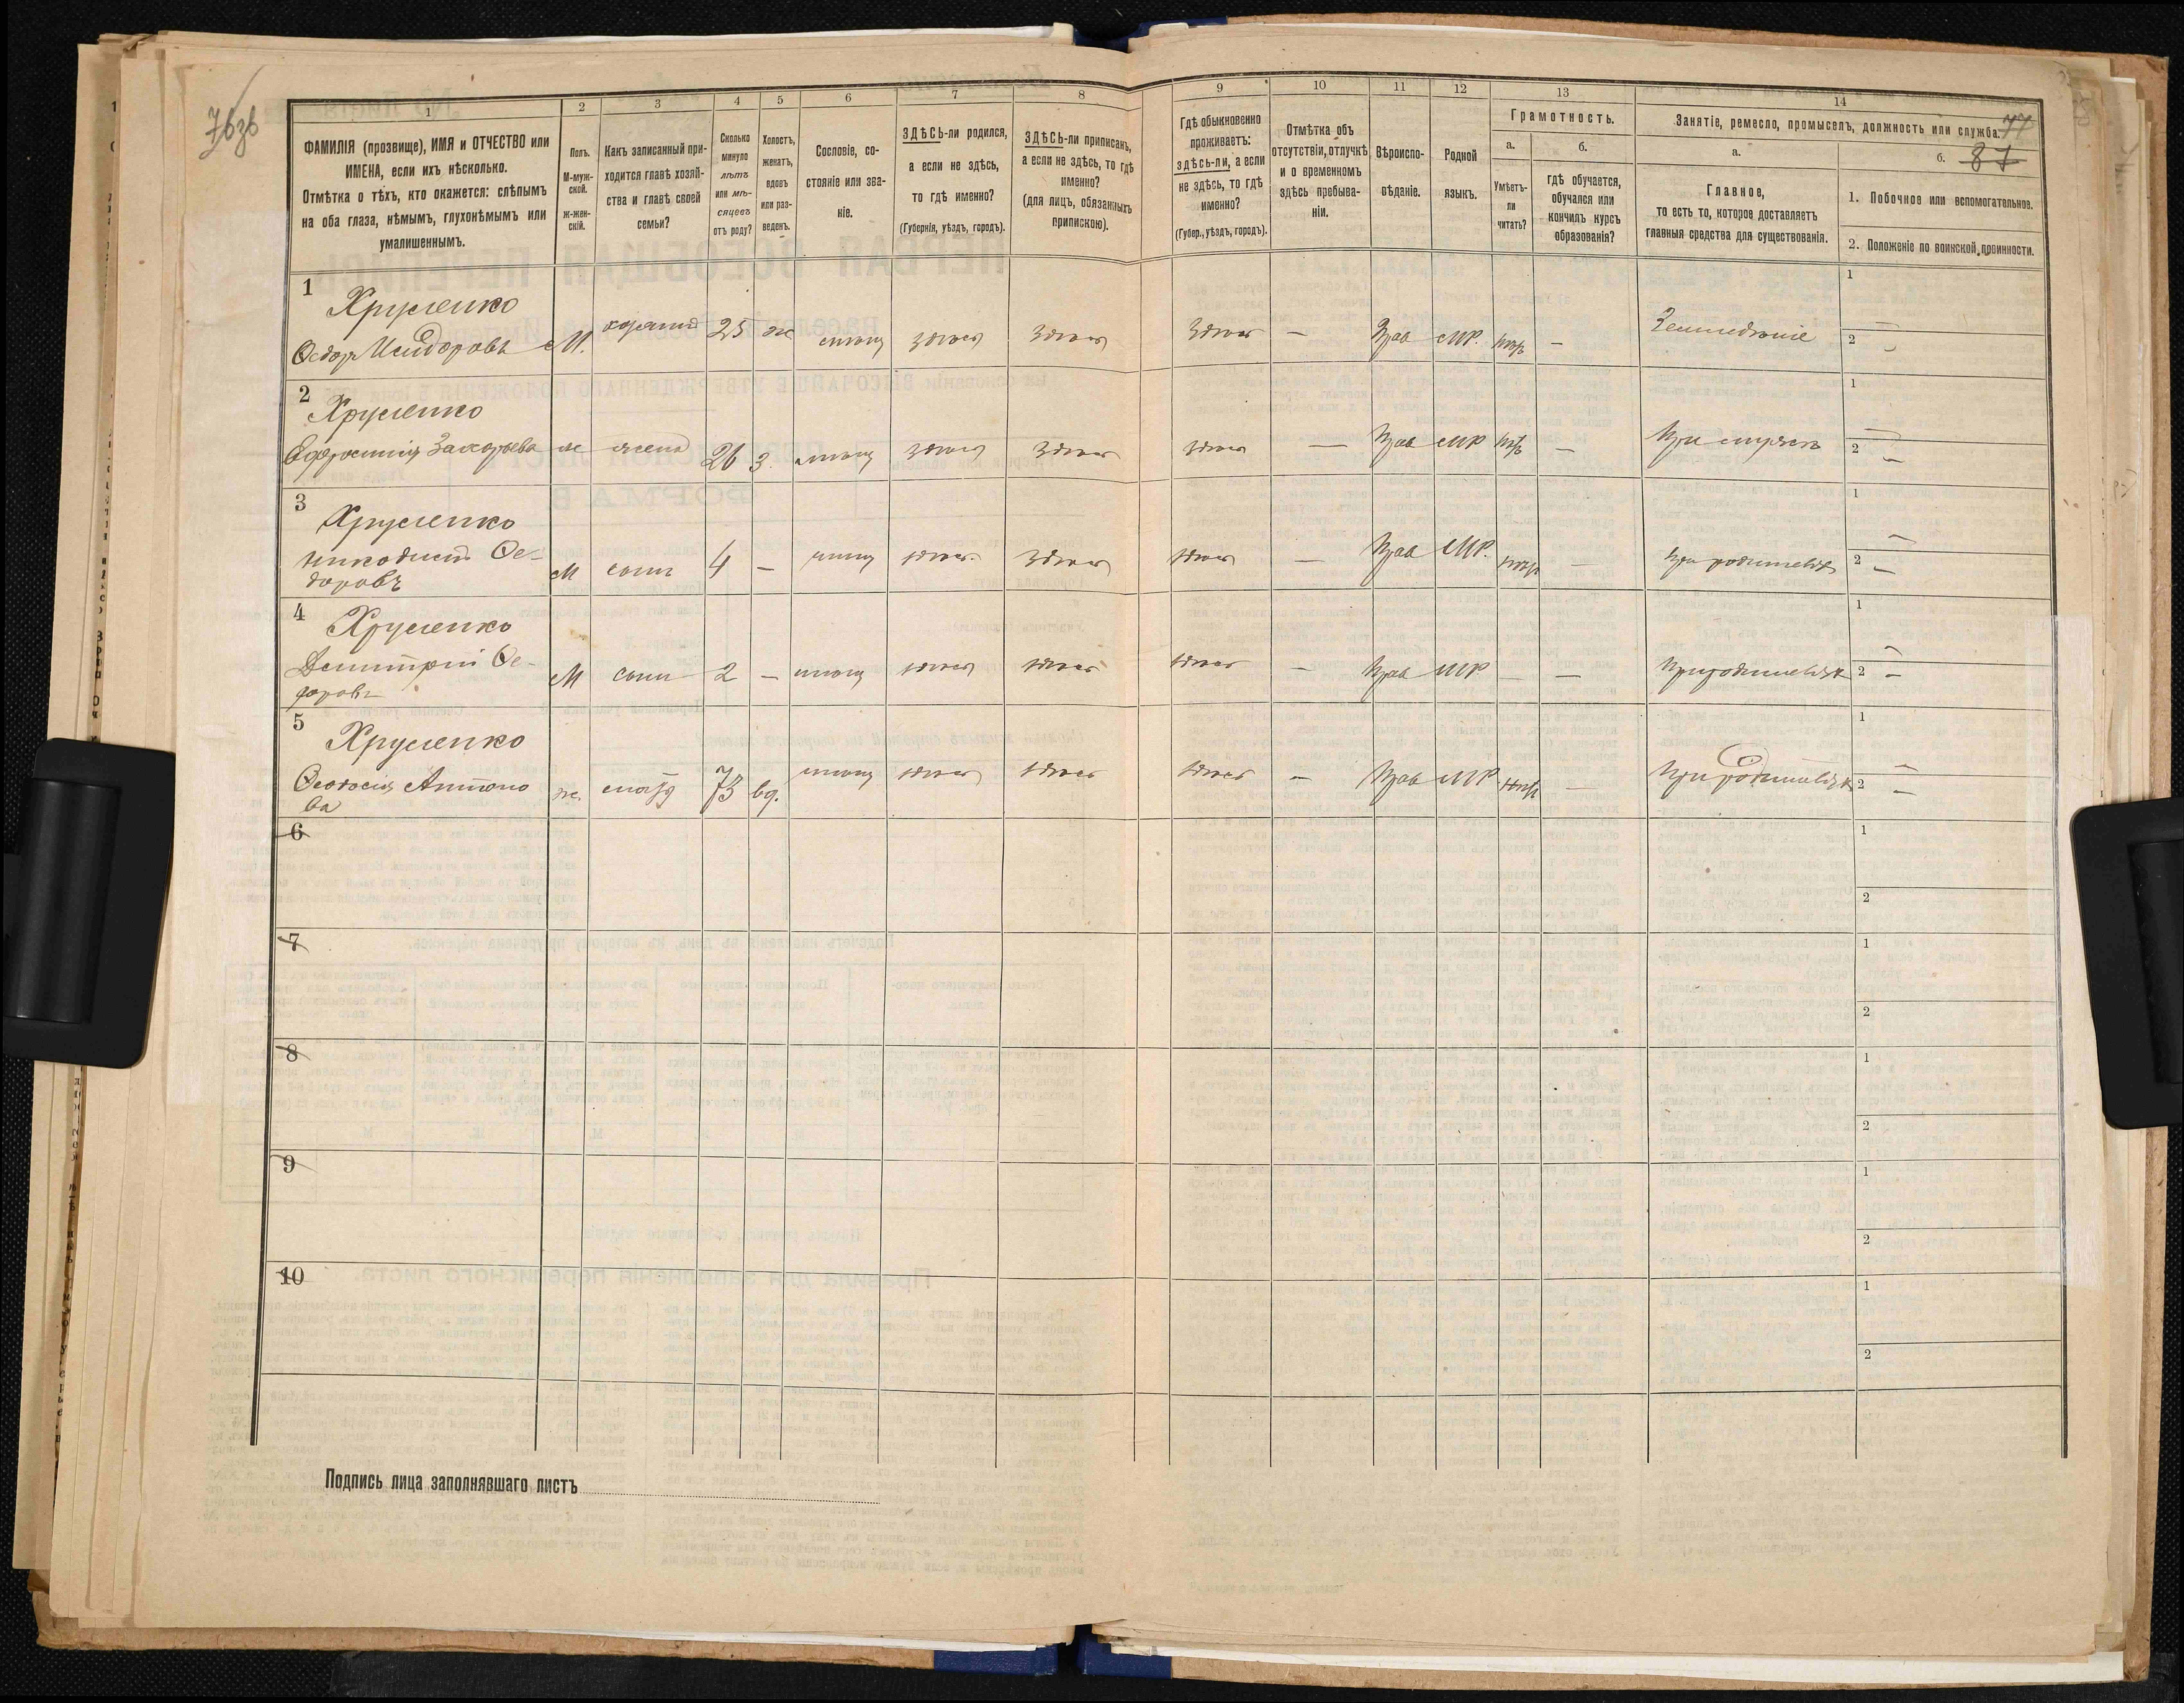 76зв
77
87
1 2 3 4 5 6 7 8 9 10 11 12 13 14
ФАМИЛІЯ (прозвище), ИМЯ и ОТЧЕСТВО или
ИМЕНА, если ихъ нѣсколько.
Отмѣтка о тѣхъ, кто окажется: слѣпымъ
на оба глаза, нѣмымъ, глухонѣмымъ или
умалишеннымъ.
Полъ.
М-муж-
ской.
ж-жен-
скій.
Какъ записанный при-
ходится главѣ хозяй-
ства и главѣ своей
семьи?
Сколько
минуло
лѣтъ
или мѣ-
сяцевъ
отъ роду?
Холостъ,
женатъ,
вдовъ
или раз-
веденъ.
Сословіе, со-
стояніе или зва-
ніе.
ЗДѢСЬ-ли родился,
а если не здѣсь,
то гдѣ именно?
(Губернія, уѣздъ, городъ).
ЗДѢСЬ-ли приписанъ,
а если не здѣсь, то гдѣ
именно?
(для лицъ, обязанныхъ
припискою).
Гдѣ обыкновенно
проживаетъ:
здѣсь-ли, а если
не здѣсь, то гдѣ
именно?
(Губер., уѣздъ, городъ).
Отмѣтка объ
отсутствіи, отлучкѣ
и о временномъ
здѣсь пребыва-
ніи.
Вѣроиспо-
вѣданіе.
Родной
языкъ.
Грамотность.
а.
Умѣетъ-
ли
читать?
б.
гдѣ обучается,
обучался или
кончилъ курсъ
образованія?
Занятіе, ремесло, промыселъ, должность или служба.
а.
Главное,
то есть то, которое доставляетъ
главныя средства для существованія.
б.
1. Побочное или вспомогательное.
2. Положеніе по воинской повинности.
1
Хрусленко
Ѳедоръ Исидоровъ М. 25 ж здѣсь здѣсь здѣсь — Прав МР. — Земледѣліе
1 —
2 —
2
Хрусленко
Ефросинія Захарьева ж жена 26 з. здѣсь здѣсь здѣсь — Прав МР —
1 —
2 —
3
Хрусленко
Никодимъ Ѳе-
доровъ М сынъ 4 — здѣсь здѣсь здѣсь — Прав МР. — При родителяхъ
1 —
2 —
4
Хрусленко
Дмитрій Ѳе-
доровъ М сынъ 2 — здѣсь здѣсь здѣсь — Прав МР — — При родителяхъ
1 —
2 —
5
Хрусленко
Ѳеодосія Антоно
ва ж. 73 вд. здѣсь здѣсь здѣсь — Прав МР. — При родителяхъ
1 —
2 —
6
1
2
7
1
2
8
1
2
9
1
2
10
1
2
Подпись лица заполнявшаго листъ